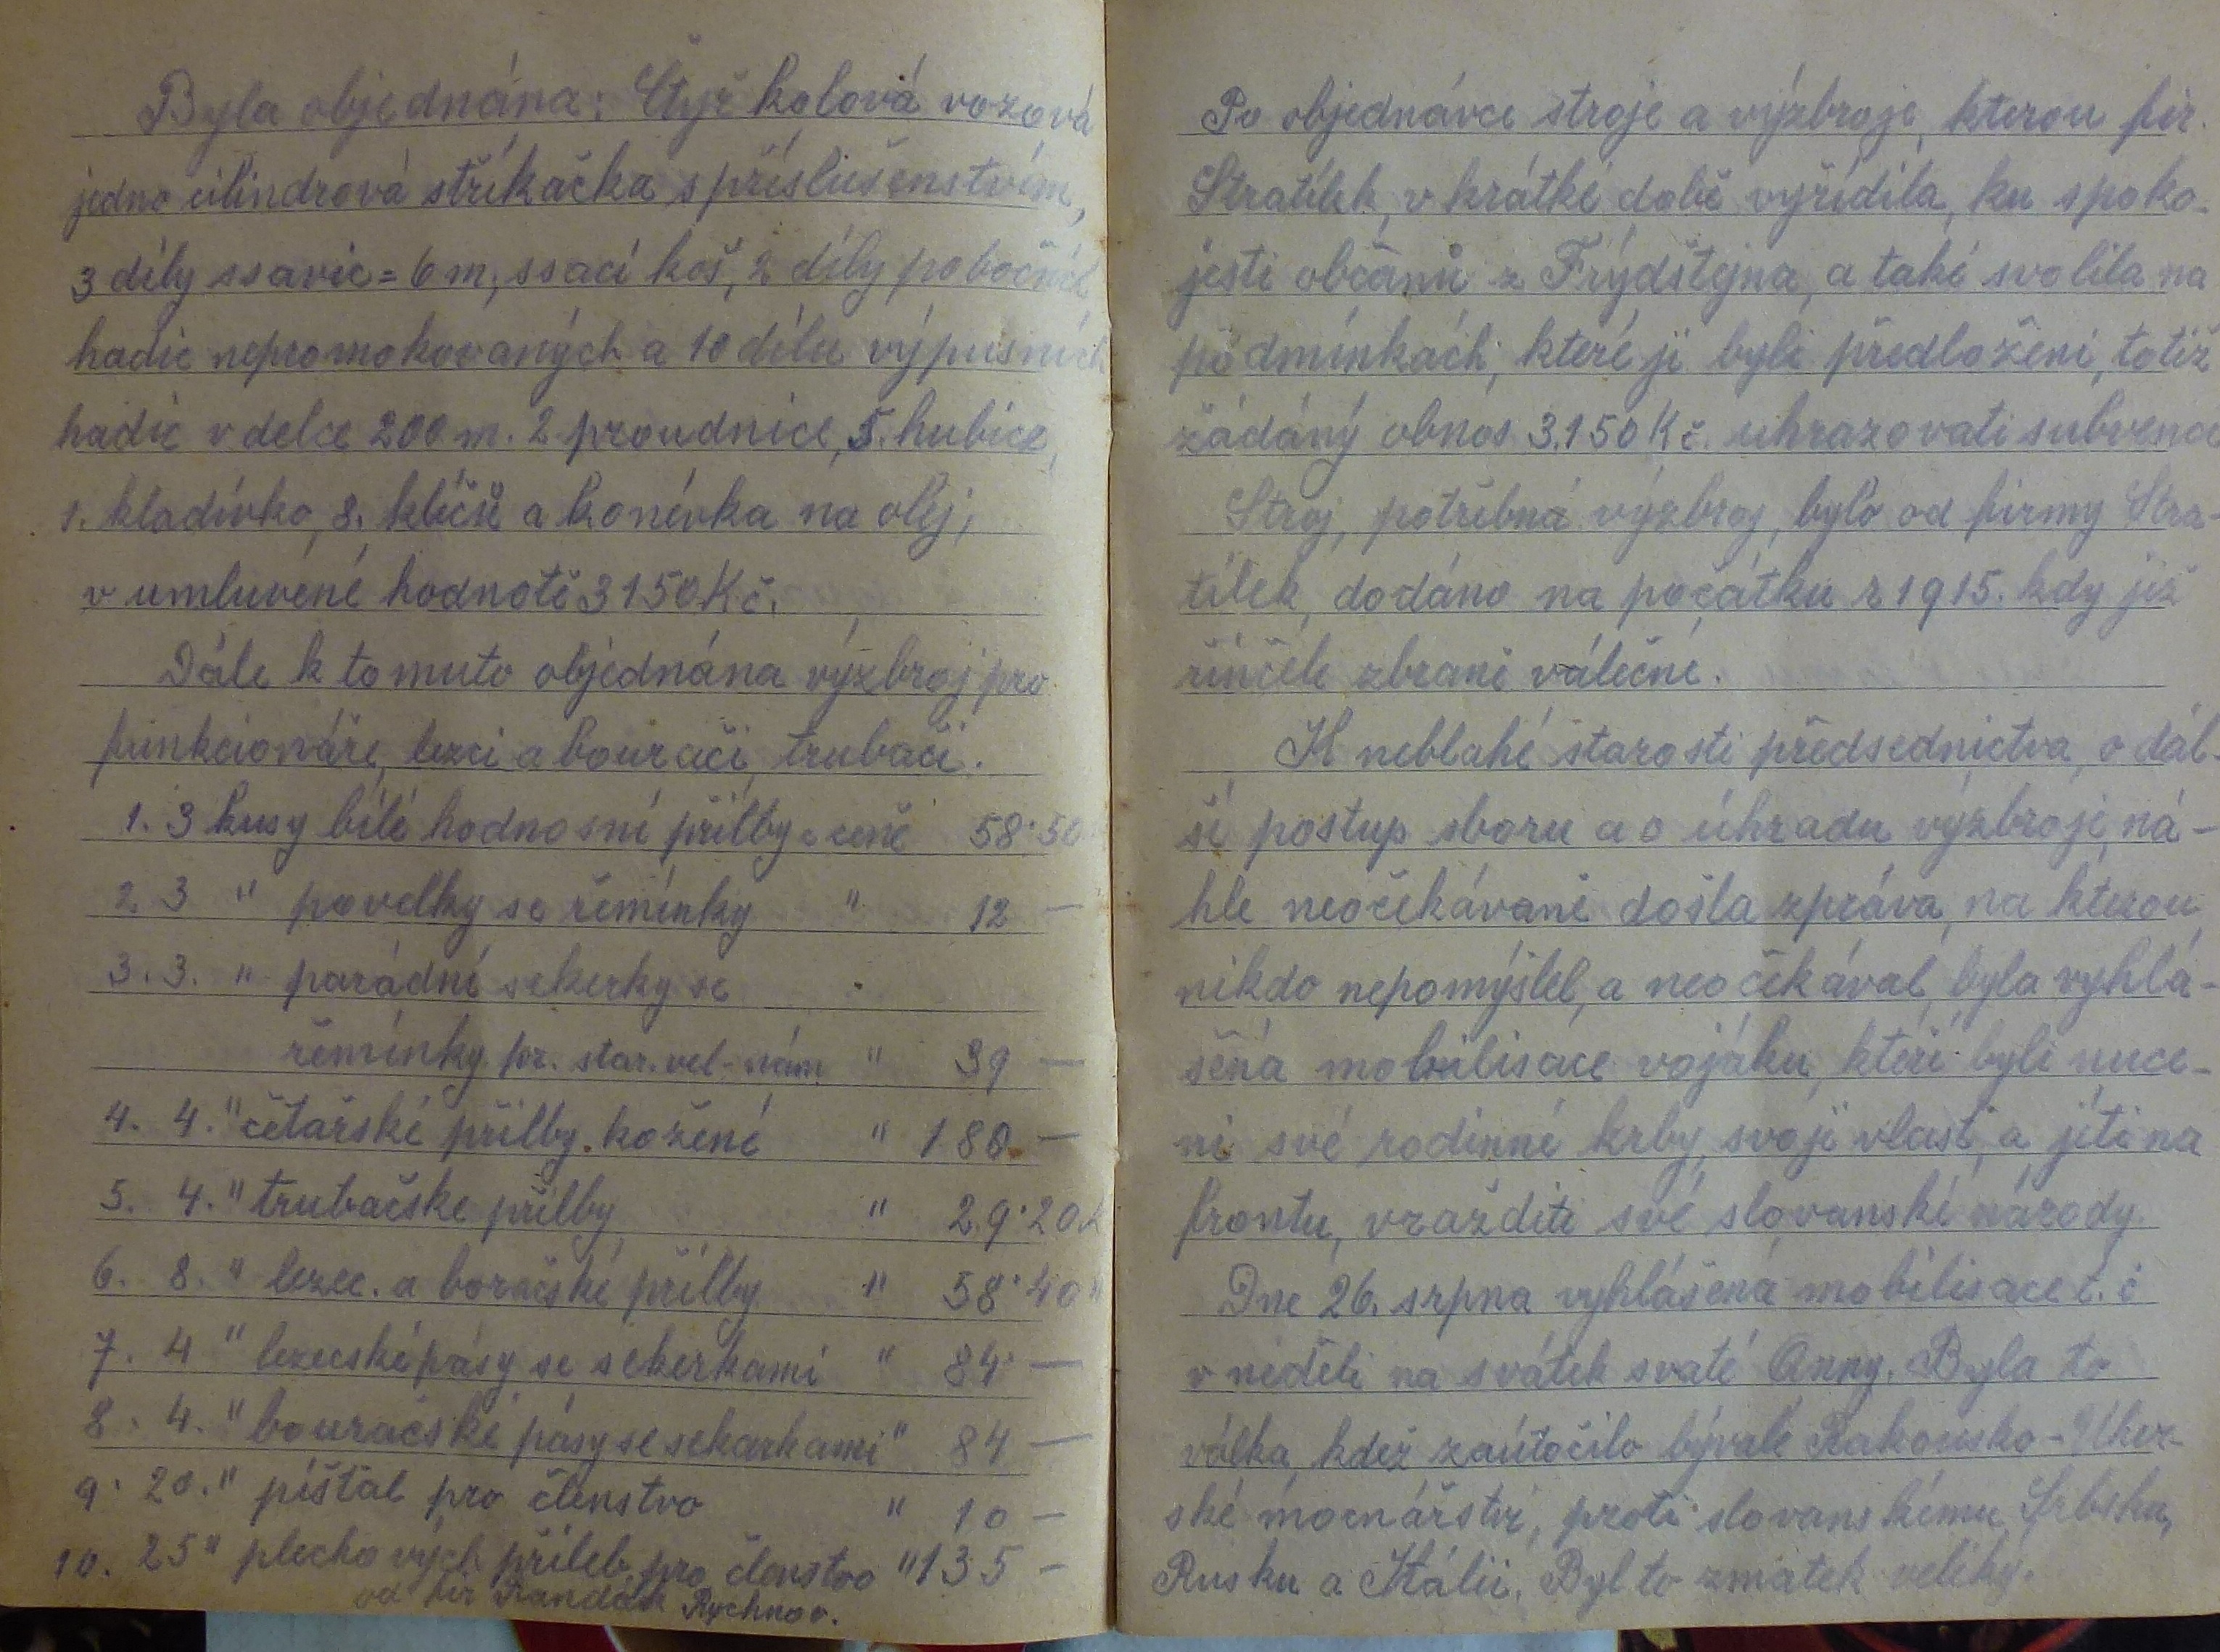 Byla objednána: Čtyř kolová vozová
jedno cilindrová stříkačka s příslušenstvím,
3 díly ssavic = 6 m, ssací koš, 2 díly pobočních
hadic nepromokovaných a 10 dílu výpusních
hadic v delce 200 m. 2 proudnice, 5. hubice,
1. kladívko, 8. klíčů a konévka na olej,
v umluvené hodnotě 3150 Kč.
Dále k tomuto objednána výzbroj pro
funkcionáře, lezci a bourači, trubači.
1. 3 kusy bílé hodnosní přilby v ceně 58·50
2. 3 " povolky se řemínky " 12 —
3. 3. " parádní sekerky se
řemínky pr. star. vel - nám " 39 —
4. 4. " četařské přilby. kožené " 180 —
5. 4. " trubačske přilby " 29·20
6. 8. " lezec. a boračské přilby " 58·40 "
7. 4 " lezecské pásy se sekerkami " 84· —
8. 4. " bouračské pásy se sekerkami " 84 —
9. 20. " píšťal pro členstvo " 10 —
10. 25 " plechových přileb pro členstvo " 135 —
od fir Rychnov.
Po objednávce stroje a výzbroje, kterou fir.
Stratílek, v krátké době vyřídila, ku spoko-
jesti občanů z Frýdštejna, a také svolila na
podmínkách, které ji byli předloženi, totiž
žádáný obnos 3.150 Kč. uhrazovati subvencí
Stroj, potřebná výzbroj, bylo od firmy Stra-
tílek, dodáno na počátku r 1915. kdy již
řinčéli zbraně válečné.
K neblahé starosti předsednictva, o dal-
ší postup sboru a o úhradu výzbroje, ná-
hle neočekávaně došla zpráva, na kterou
nikdo nepomýšlel, a neočekával, byla vyhlá-
šená mobilisace vojáku, kteří byli nuce-
ni své rodinné krby, svoji vlast, a jíti na
frontu, vražditi své slovanské národy.
Dne 26. srpna vyhlášená mobilisace t. č
v neděli na svátek svaté Anny. Byla to
válka, kdež zaútočilo bývalé Rakousko-Uher-
ské mocnářství, proti slovanskému Srbsku,
Rusku a Itálii. Byl to zmatek veliký.